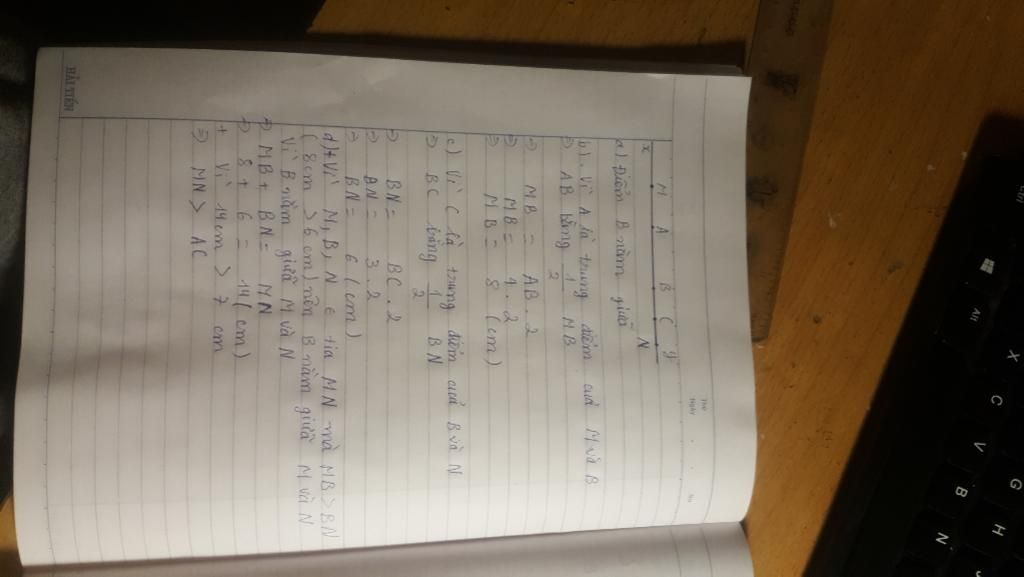 Thứ
Ngày
No
x M A B C N y
a) Điểm B nằm giữa
b). Vì A là trung điểm của M và B
=> AB bằng 1/2 MB
=> MB = AB . 2
=> MB = 4 . 2
=> MB = 8 (cm)
c) Vì C là trung điểm của B và N
=> BC bằng 1/2 BN
=> BN = BC . 2
=> BN = 3 . 2
=> BN = 6 (cm)
d) + Vì M, B, N ∈ tia MN mà MB > BN
(8cm > 6cm) nên B nằm giữa M và N
Vì B nằm giữa M và N
=> MB + BN = MN
=> 8 + 6 = 14 (cm)
+ Vì 14cm > 7 cm
=> MN > AC
HẢI TIẾN
Alt
X
C
V
B
N
G
H
J